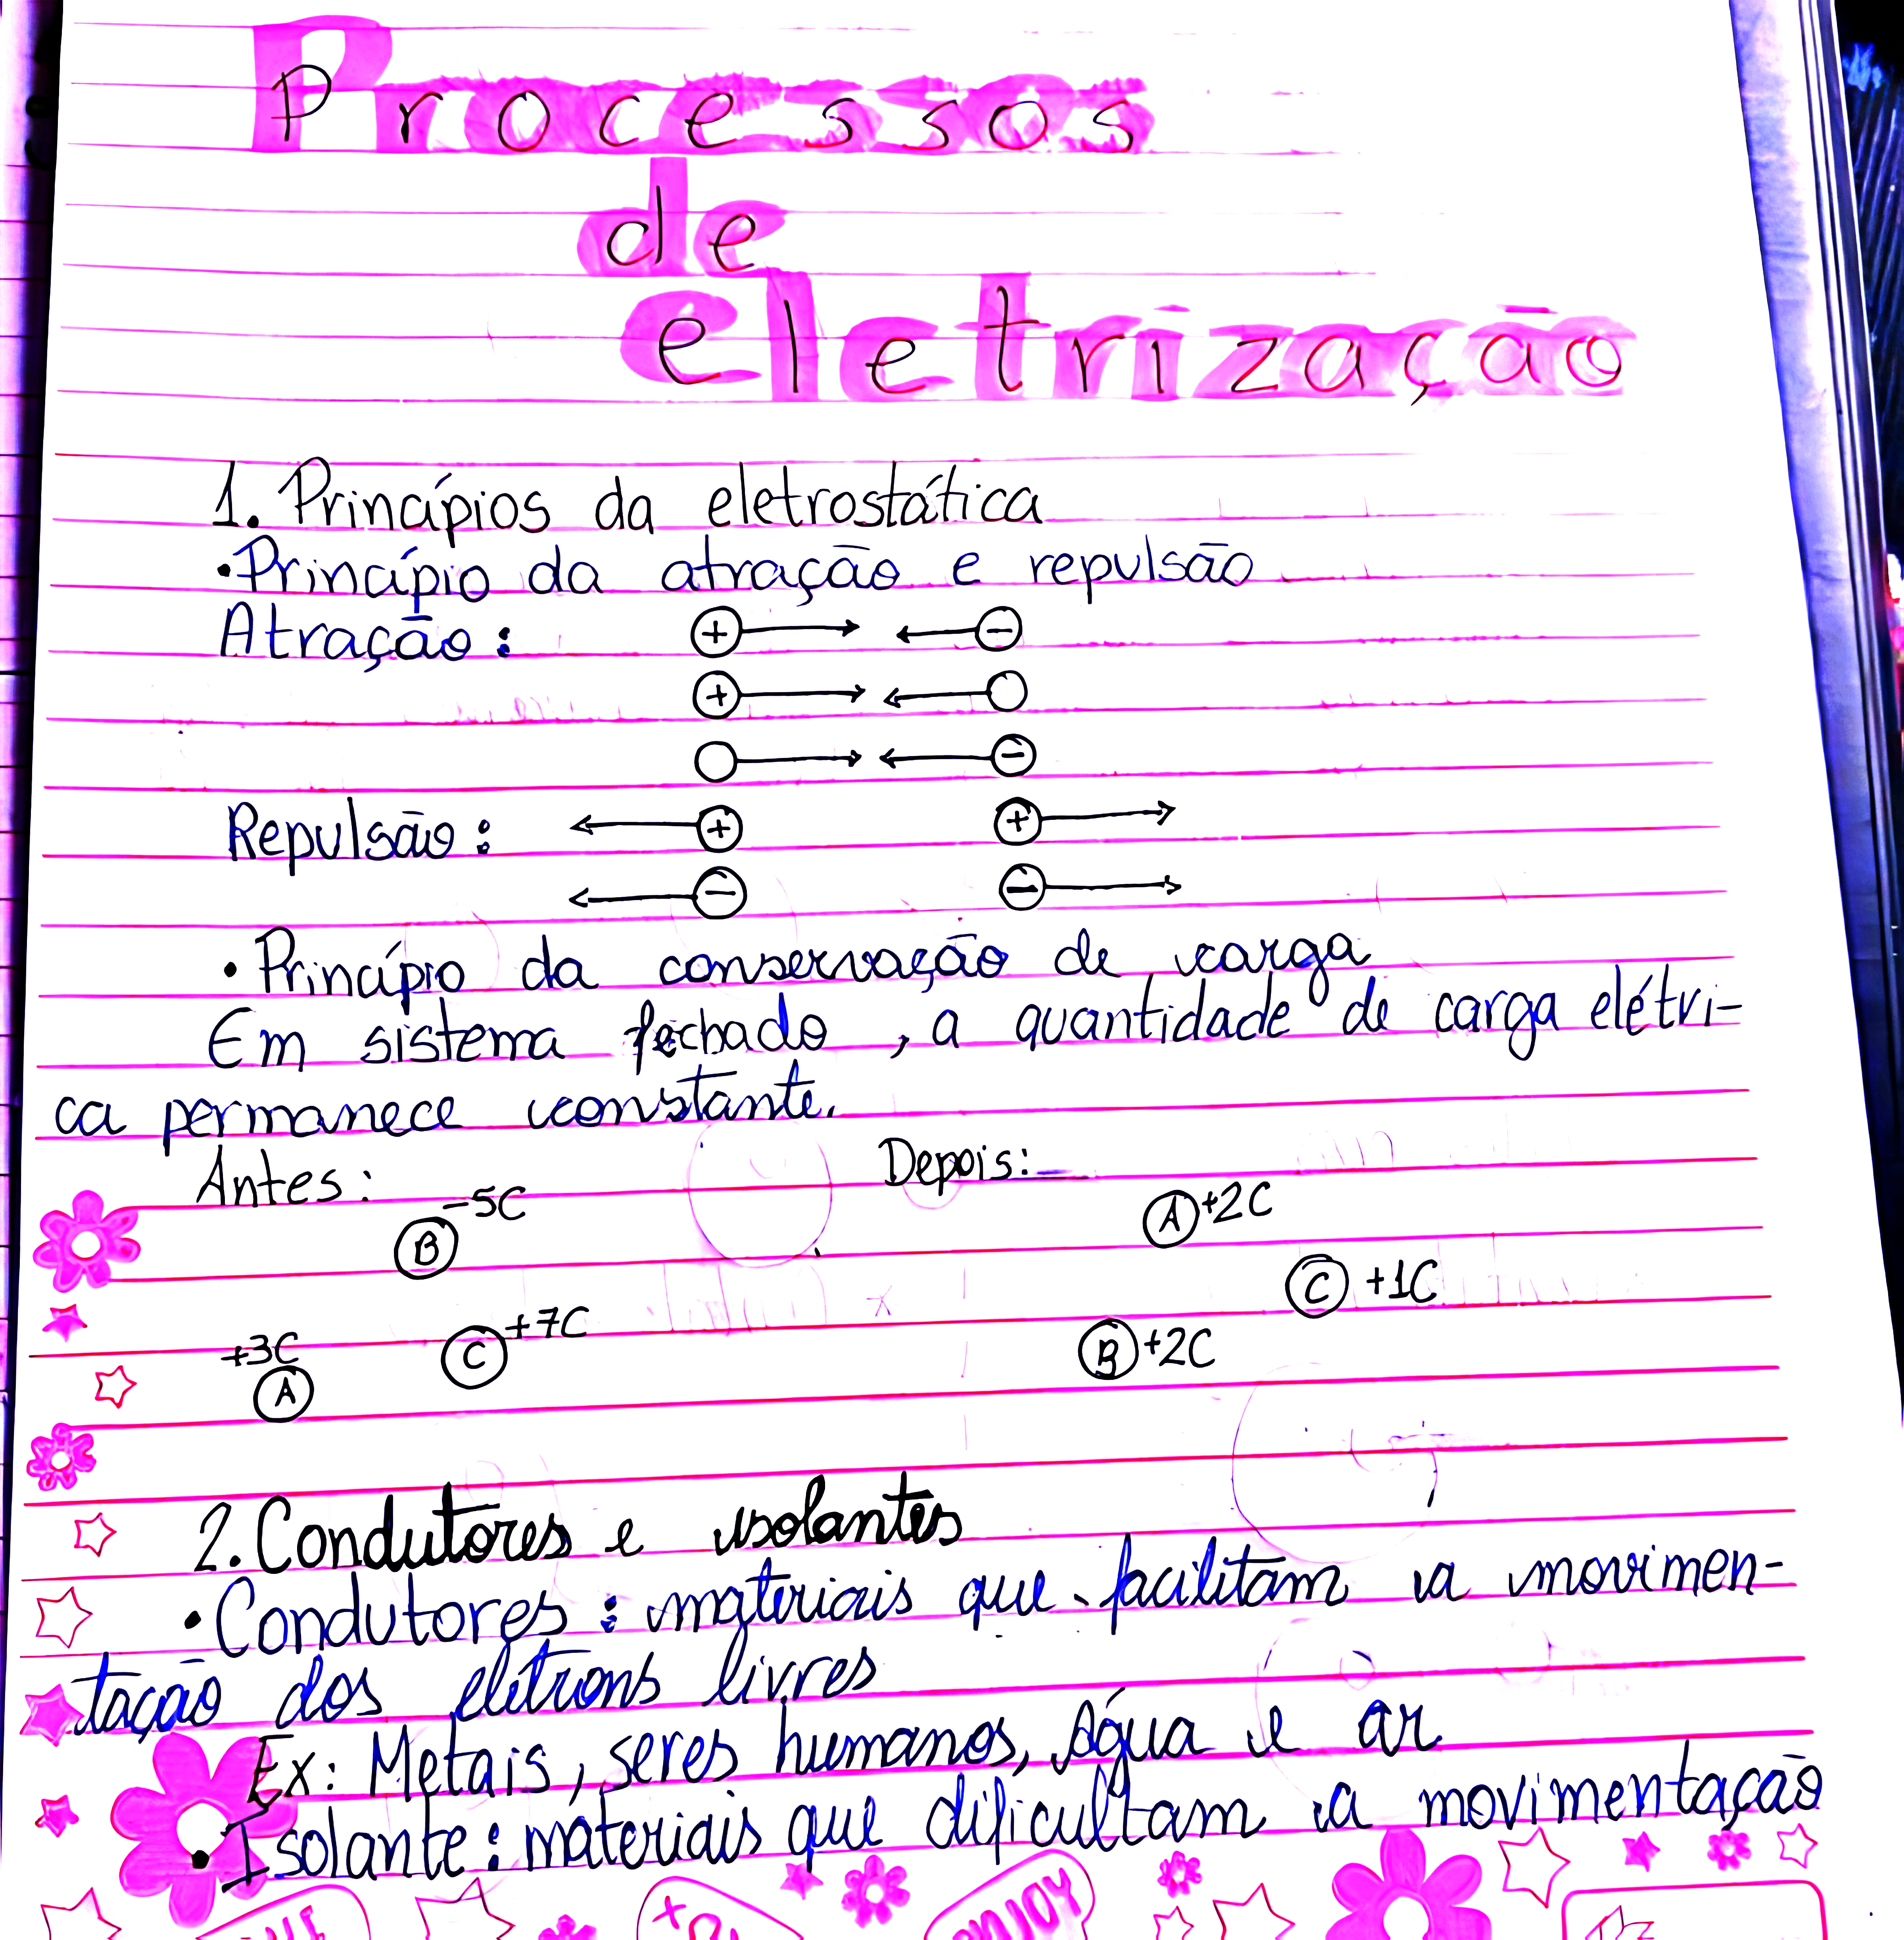 Processos
de
eletrização
1. Princípios da eletrostática
•Princípio da atração e repulsão
Atração: + −
+
−
Repulsão: + +
− −
• Princípio da conservação de carga
Em sistema fechado, a quantidade de carga elétri-
ca permanece constante.
Antes: Depois:
B −5C A +2C
C +1C
+3C A C +7C B +2C
2. Condutores e isolantes
• Condutores: materiais que facilitam a movimen-
tação dos elétrons livres
Ex: Metais, seres humanos, água e ar
• Isolante: materiais que dificultam a movimentação
ENJOY